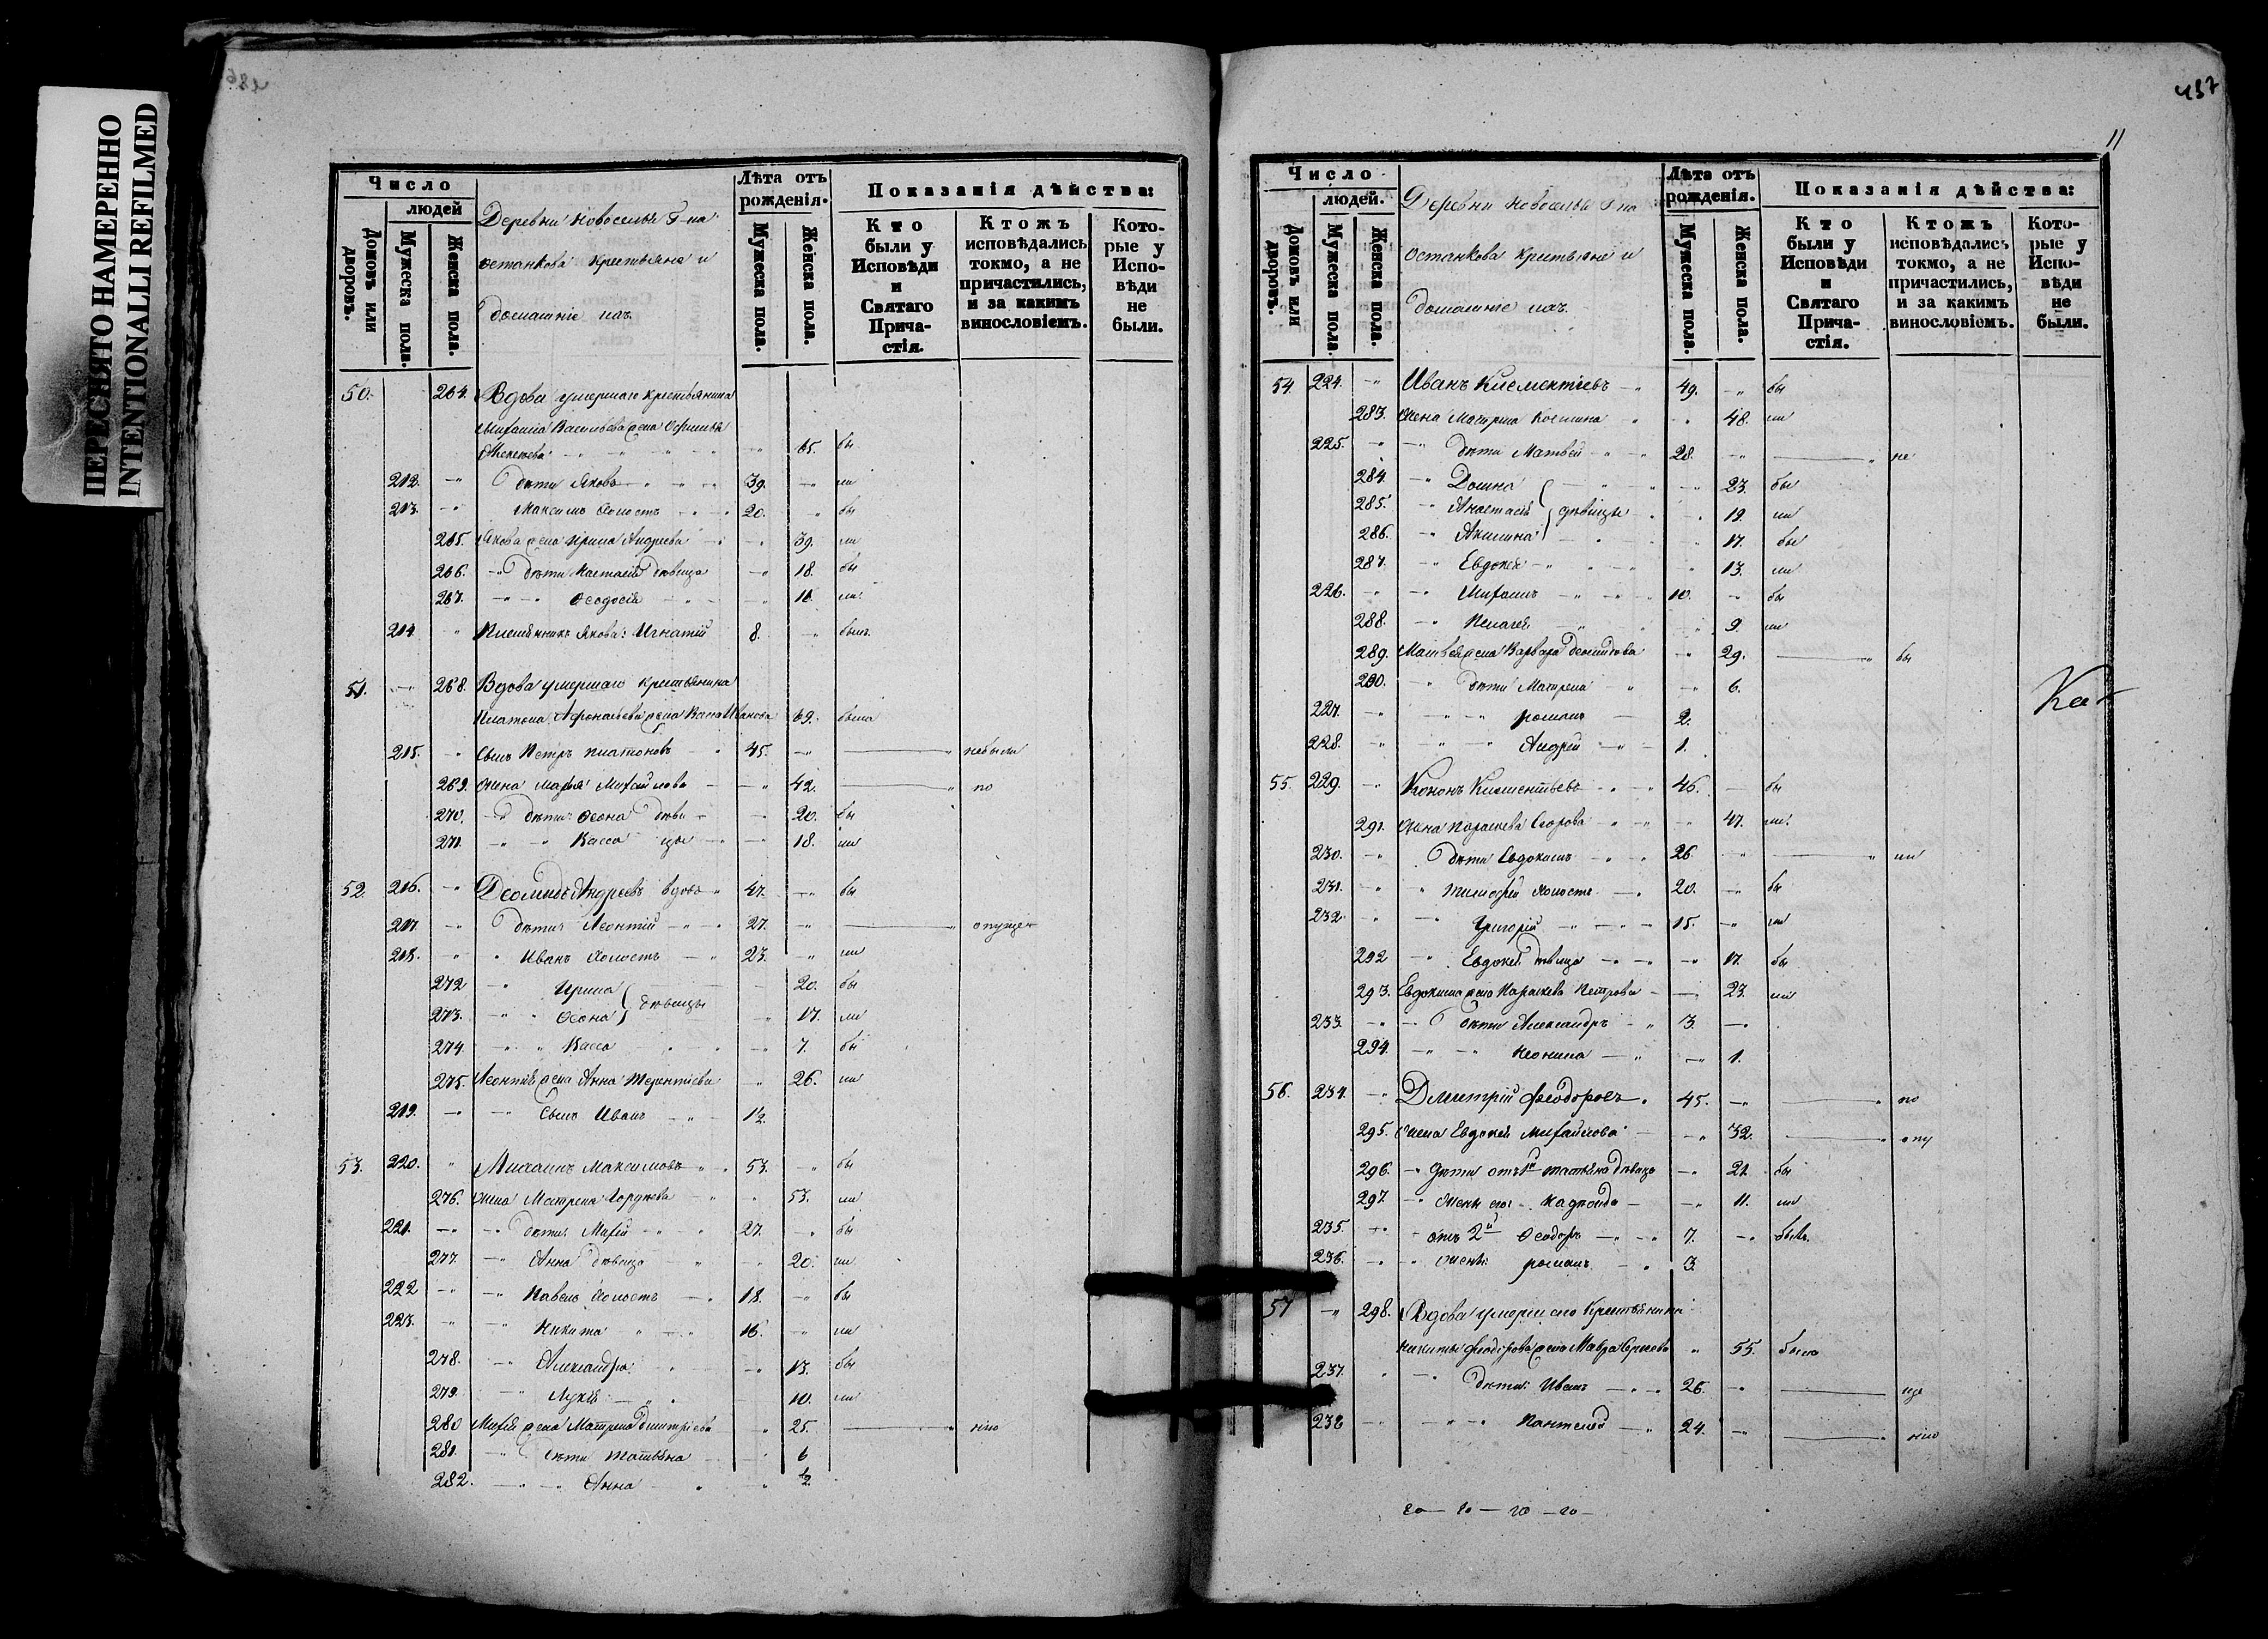 ПЕРЕСНЯТО НАМЕРЕННО
INTENTIONALLI REFILMED
Число
людей
Домовъ или дворовъ.
Мужеска пола.
Женска пола.
Деревни Новоселья Г-на
Останкова крестьяне и
домашніе ихъ
Лѣта отъ рожденія.
Мужеска пола.
Женска пола.
Показанія дѣйства:
Кто были у Исповѣди и Святаго Прича-стія.
Ктожъ исповѣдались токмо, а не причастились, и за какимъ винословіемъ.
Кото-рые у Испо-вѣди не были.
50. 264. Вдова умершаго крестьянина
Михаила Васильева жена
65. бы
212. дѣти Яковъ 39. ли
213. Максимъ холостъ 20. бы
265. Якова жена Ирина Андреева 39. ли
266. дѣти Настасія дѣвица 18. бы
267. Ѳеодосія 16. ли
214. Племянникъ Якова: Игнатій 8. былъ
51. 268. Вдова умершаго крестьянина
Платона жена Ивакова 69. была
215. Сынъ Петръ Платоновъ 45. небыли
269. Жена Марья Михайлова 42. по
270. дѣти Ѳеона дѣви 20. бы
271. Васса цы 18. ли
52. 216. Деомидъ Андреевъ вдовъ 47. бы
217. дѣти Леонтій 27. опущен
218. Иванъ холостъ 23. ли
272 Ирина 20. бы
273. Ѳеона дѣвицы 17. ли
274. Васса 7. бы
275. Леонтія жена Анна Терентіева 26. ли
219. Сынъ Иванъ 1/2
53. 220. Михаилъ Максимовъ 53. бы
276. жена Матрена Гордѣева 53. ли
221. дѣти 27. бы
277. Анна дѣвица 20. ли
222 Павелъ холостъ 18. бы
223. Никита 16. ли
278. Александра 13. бы
279. Лукія 10. ли
280 жена Матрена Дмитріева 25. нію
281. дѣти Татьяна 6
282. Анна 1/2
437
11
Число
людей.
Домовъ или дворовъ.
Мужеска пола.
Женска пола.
Деревни Новоселья Г-на
Останкова крестьяне и
домашніе ихъ
Лѣта отъ рожденія.
Мужеска пола.
Женска пола.
Показанія дѣйства:
Кто были у Исповѣди и Святаго Прича-стія.
Ктожъ исповѣдались токмо, а не причастились, и за какимъ винословіемъ.
Кото-рые у Испо-вѣди не были.
54. 224. Иванъ Клементіевъ 49. бы
283. Жена Матрена 48. ли
225. дѣти Матвей 28. не
284. Домна 23. бы
285. Анастасія дѣвицы 19. ли
286. Акилина 17. бы
287. Евдокія 13. ли
226. Михаилъ 10. бы
288. Пелагея 9. ли
289. Матвея жена Варвара 29. бы
290. дѣти Матрена 6.
227. романъ 2.
228. Андрей 1.
55. 229. Кононъ Климентьевъ 46. бы
291. Жена Параскева Егорова 47. ли
230. дѣти Евдокимъ 26. ли
231. Тимофей холостъ 20. бы
232 Григорій 15. ли
292 Евдокія дѣвица 17. бы
293. Евдокима жена Параскева Петрова 23. ли
233. дѣти Александръ 3.
294. 1.
56. 234. Дмитрій Феодоровъ 45. по
295. Жена Евдокія Михайлова 32. опу
296. Дѣти отъ 1й Татьяна дѣвица 21. бы
297 жены его 11. ли
235. отъ 2й Ѳеодоръ 7. былъ
236. жены: романъ 3.
57 298. Вдова умершаго крестьянина
Никиты Феодорова жена Мавра 55. была
237. дѣти Иванъ 26. ще
238 Пантелей 24. нію